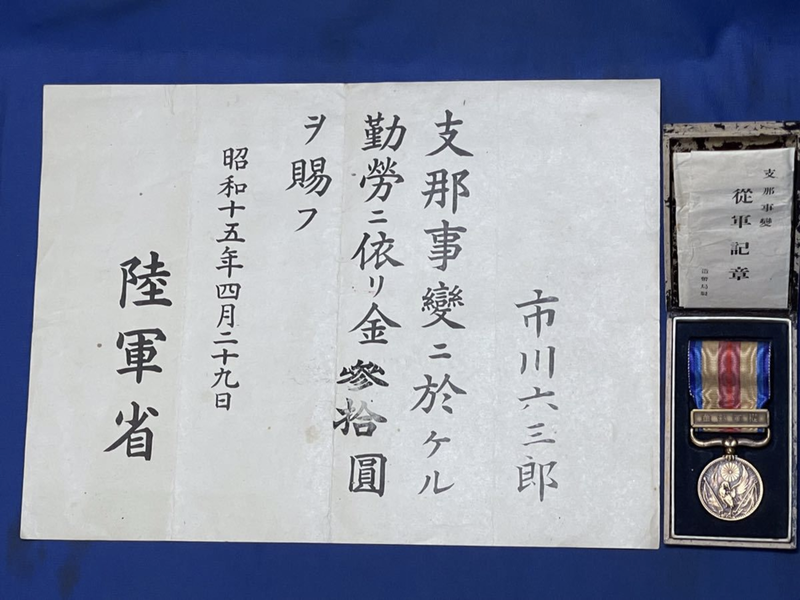 市川六三郎
支那事變ニ於ケル
勤勞ニ依リ金參拾圓
ヲ賜フ
昭和十五年四月二十九日
陸軍省
支那事變
從軍記章
造幣局製